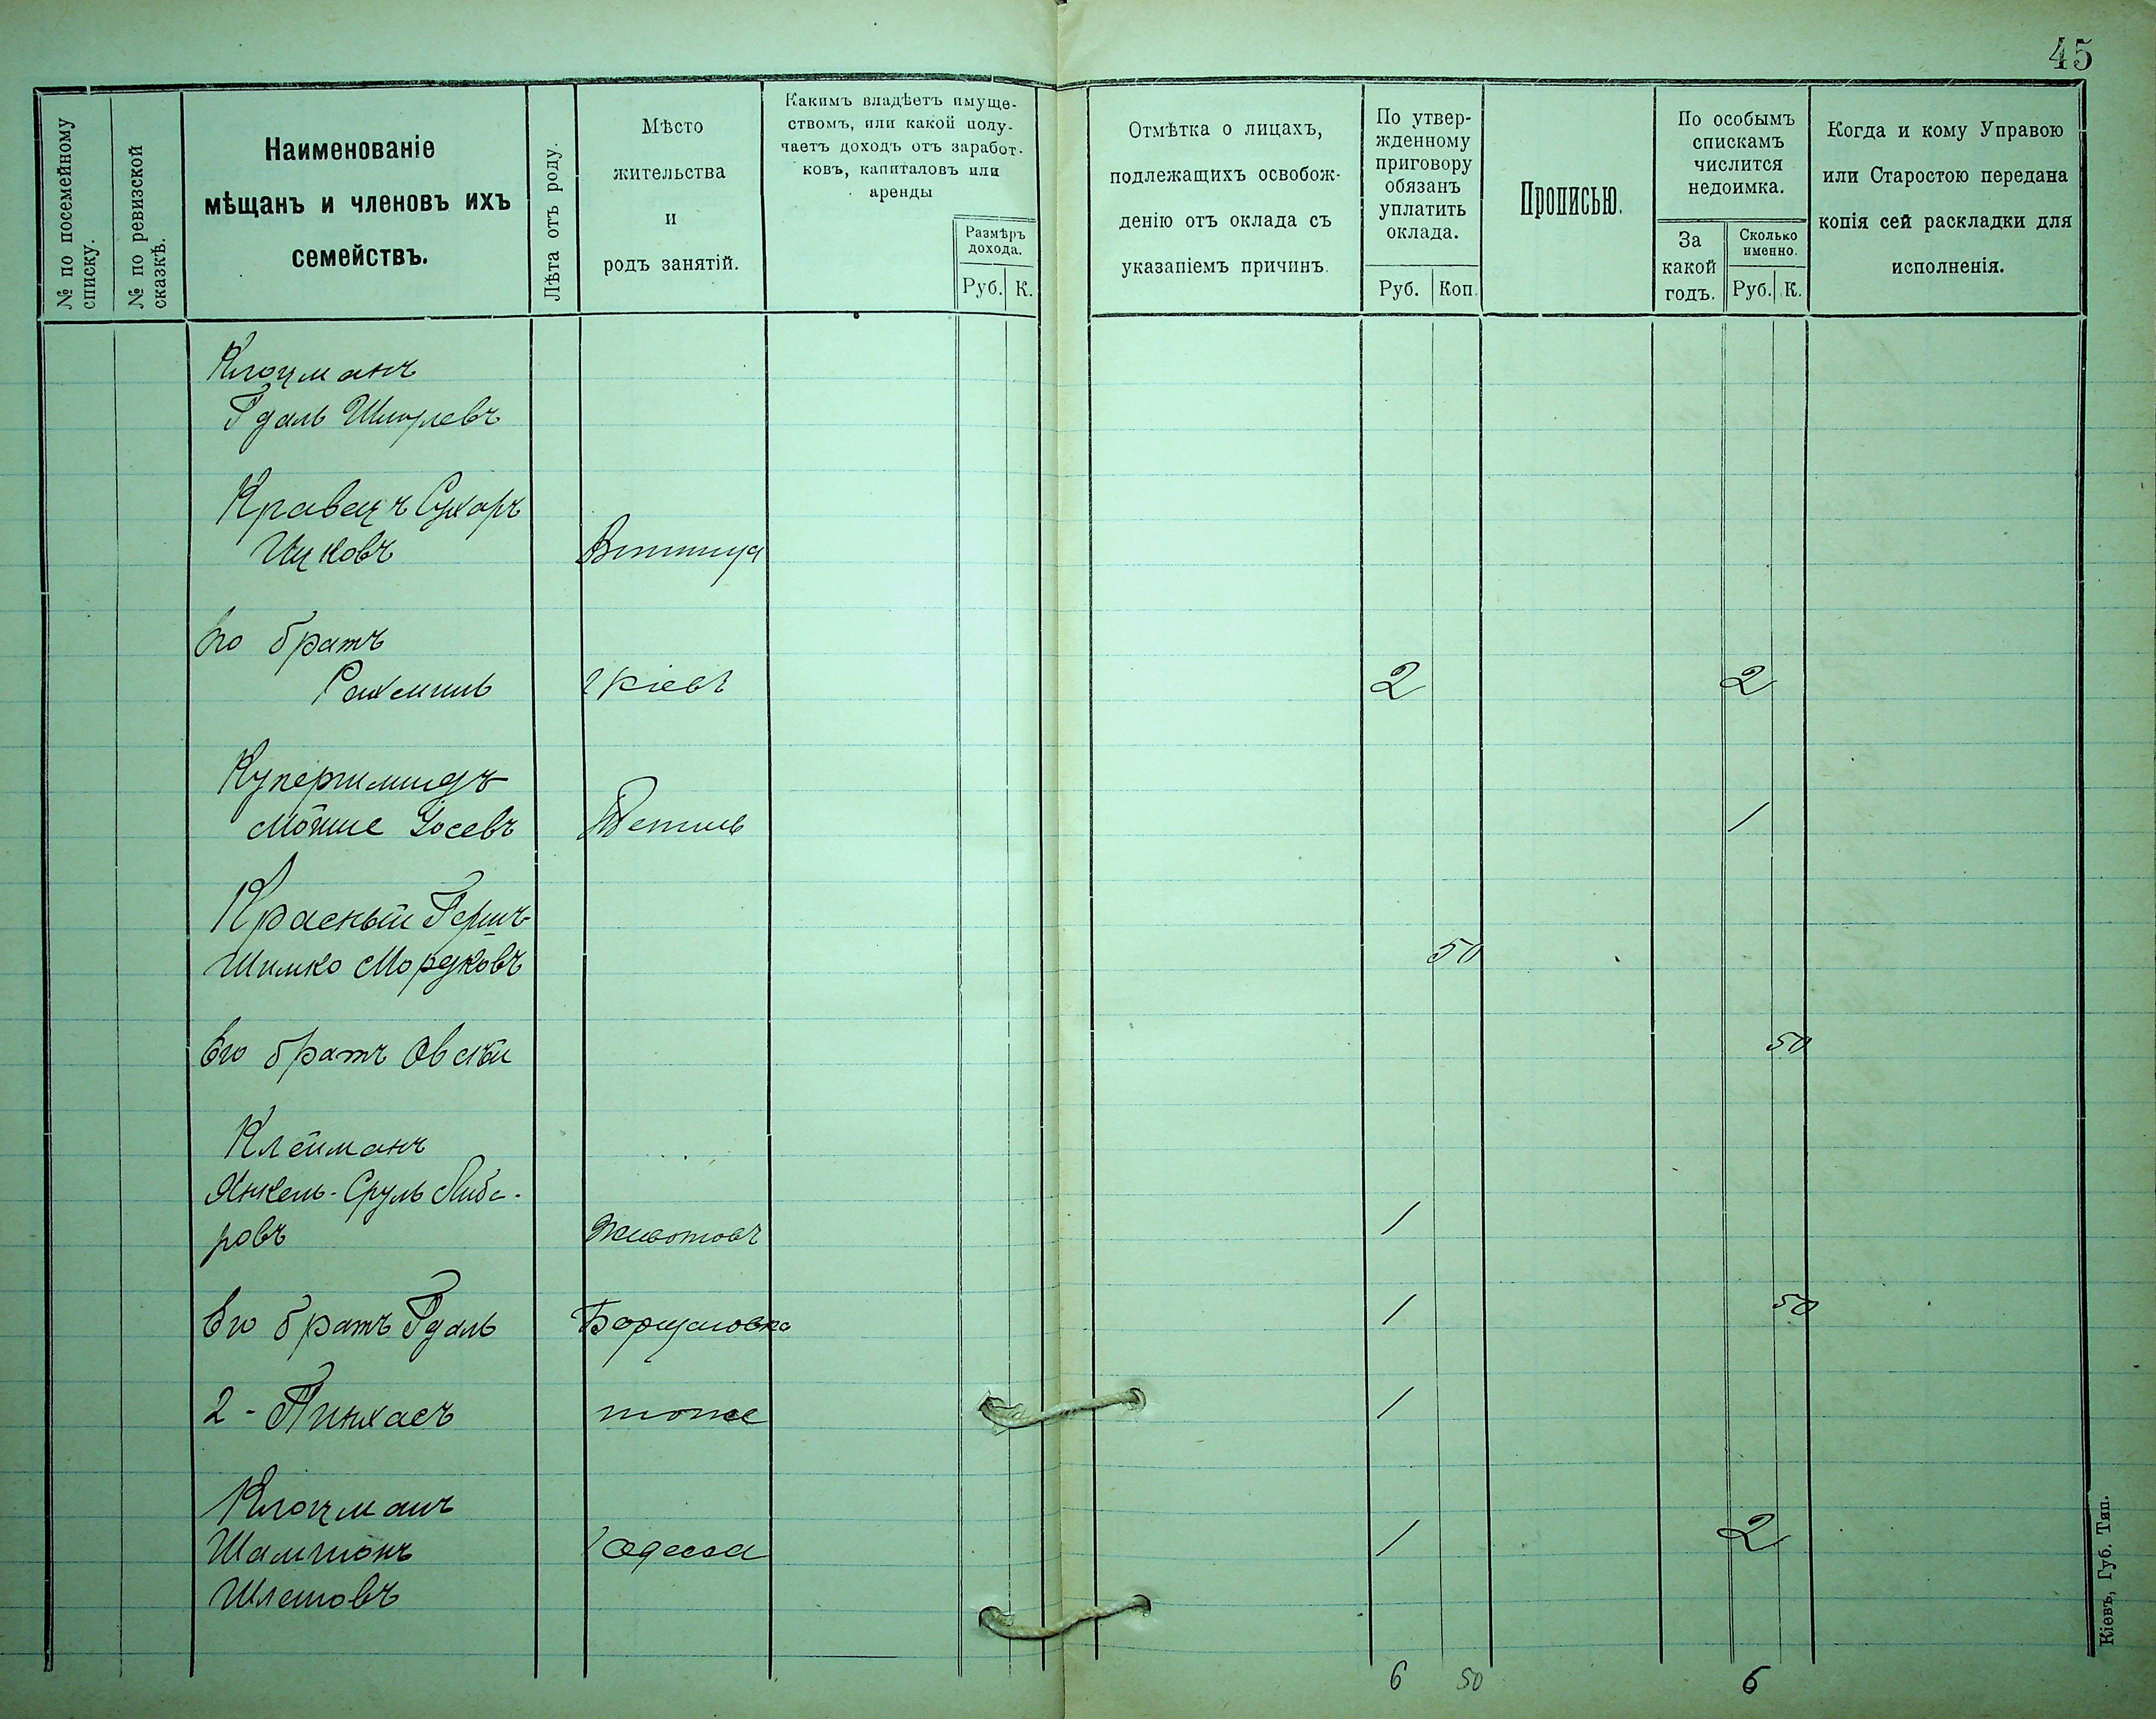 45
№ по посемейному списку.
№ по ревизской сказкѣ.
Наименованіе
мѣщанъ и членовъ ихъ
семействъ.
Лѣта отъ роду.
Мѣсто
жительства
и
родъ занятій.
Какимъ владѣетъ имуще-
ствомъ, или какой полу-
чаетъ доходъ отъ заработ-
ковъ, капиталовъ или
аренды
Размѣръ
дохода.
Руб. К.
Отмѣтка о лицахъ,
подлежащихъ освобож-
денію отъ оклада съ
указаніемъ причинъ.
По утвер-
жденному
приговору
обязанъ
уплатить
оклада.
Руб. Коп.
Прописью.
По особымъ
спискамъ
числится
недоимка.
За
какой
годъ.
Сколько
именно.
Руб. К.
Когда и кому Управою
или Старостою передана
копія сей раскладки для
исполненія.
Клоцманъ
Гдаль Шмулевъ
Кравецъ Сухаръ
Ицковъ Винница
Его братъ
Рахмиль Кіевъ 2 2
Купершмидъ
Мойше Іосевъ 1
Красный Гершъ
Шимко Мордковъ 50
Его братъ Овсѣй 50
Клейманъ
Янкель-Сруль Либе-
ровъ Животовъ 1
Его братъ Гдаль Борщаговка 1 50
2 - Пинхасъ тоже 1
Клоцманъ
Шамшонъ Одесса 1 2
6 50 6
Кіевъ, Губ. Тип.